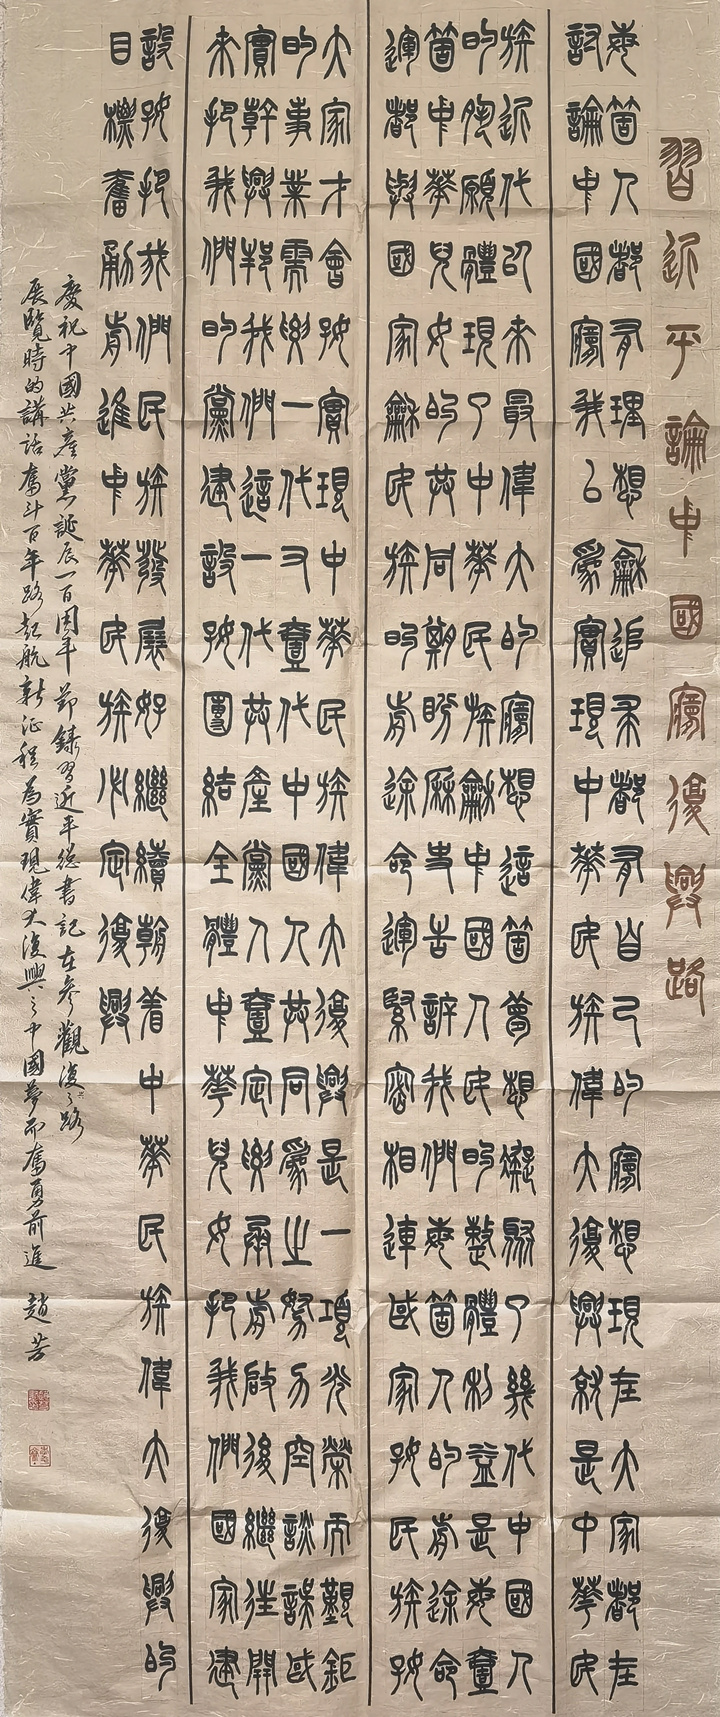 習近平論中國夢復興路
每箇人都有理想龢追求都有自己的夢想現在大家都在
討論中國夢我以為實現中華民族偉大復興就是中華民
族近代以來最偉大的夢想這箇夢想凝聚了幾代中國人
的夙願體現了中華民族龢中國人民的整體利益是每壹
箇中華兒女的共同期盼歷史告訴我們每箇人的前途命
運都與國家龢民族的前途命運緊密相連國家好民族好
大家才會好實現中華民族偉大復興是一項光榮而艱鉅
的事業需要一代又壹代中國人共同為之努力空談誤國
實幹興邦我們這一代共產黨人壹定要承前啟後繼往開
來把我們的黨建設好團結全體中華兒女把我們國家建
設好把我們民族發展好繼續朝着中華民族偉大復興的
目標奮勇前進中華民族必定復興
慶祝中國共產黨誕辰一百周年 節錄習近平總書記在參觀復興之路
展覽時的講話奮斗百年路起航新征程為實現偉大復興之中國夢而奮勇前進 趙芳